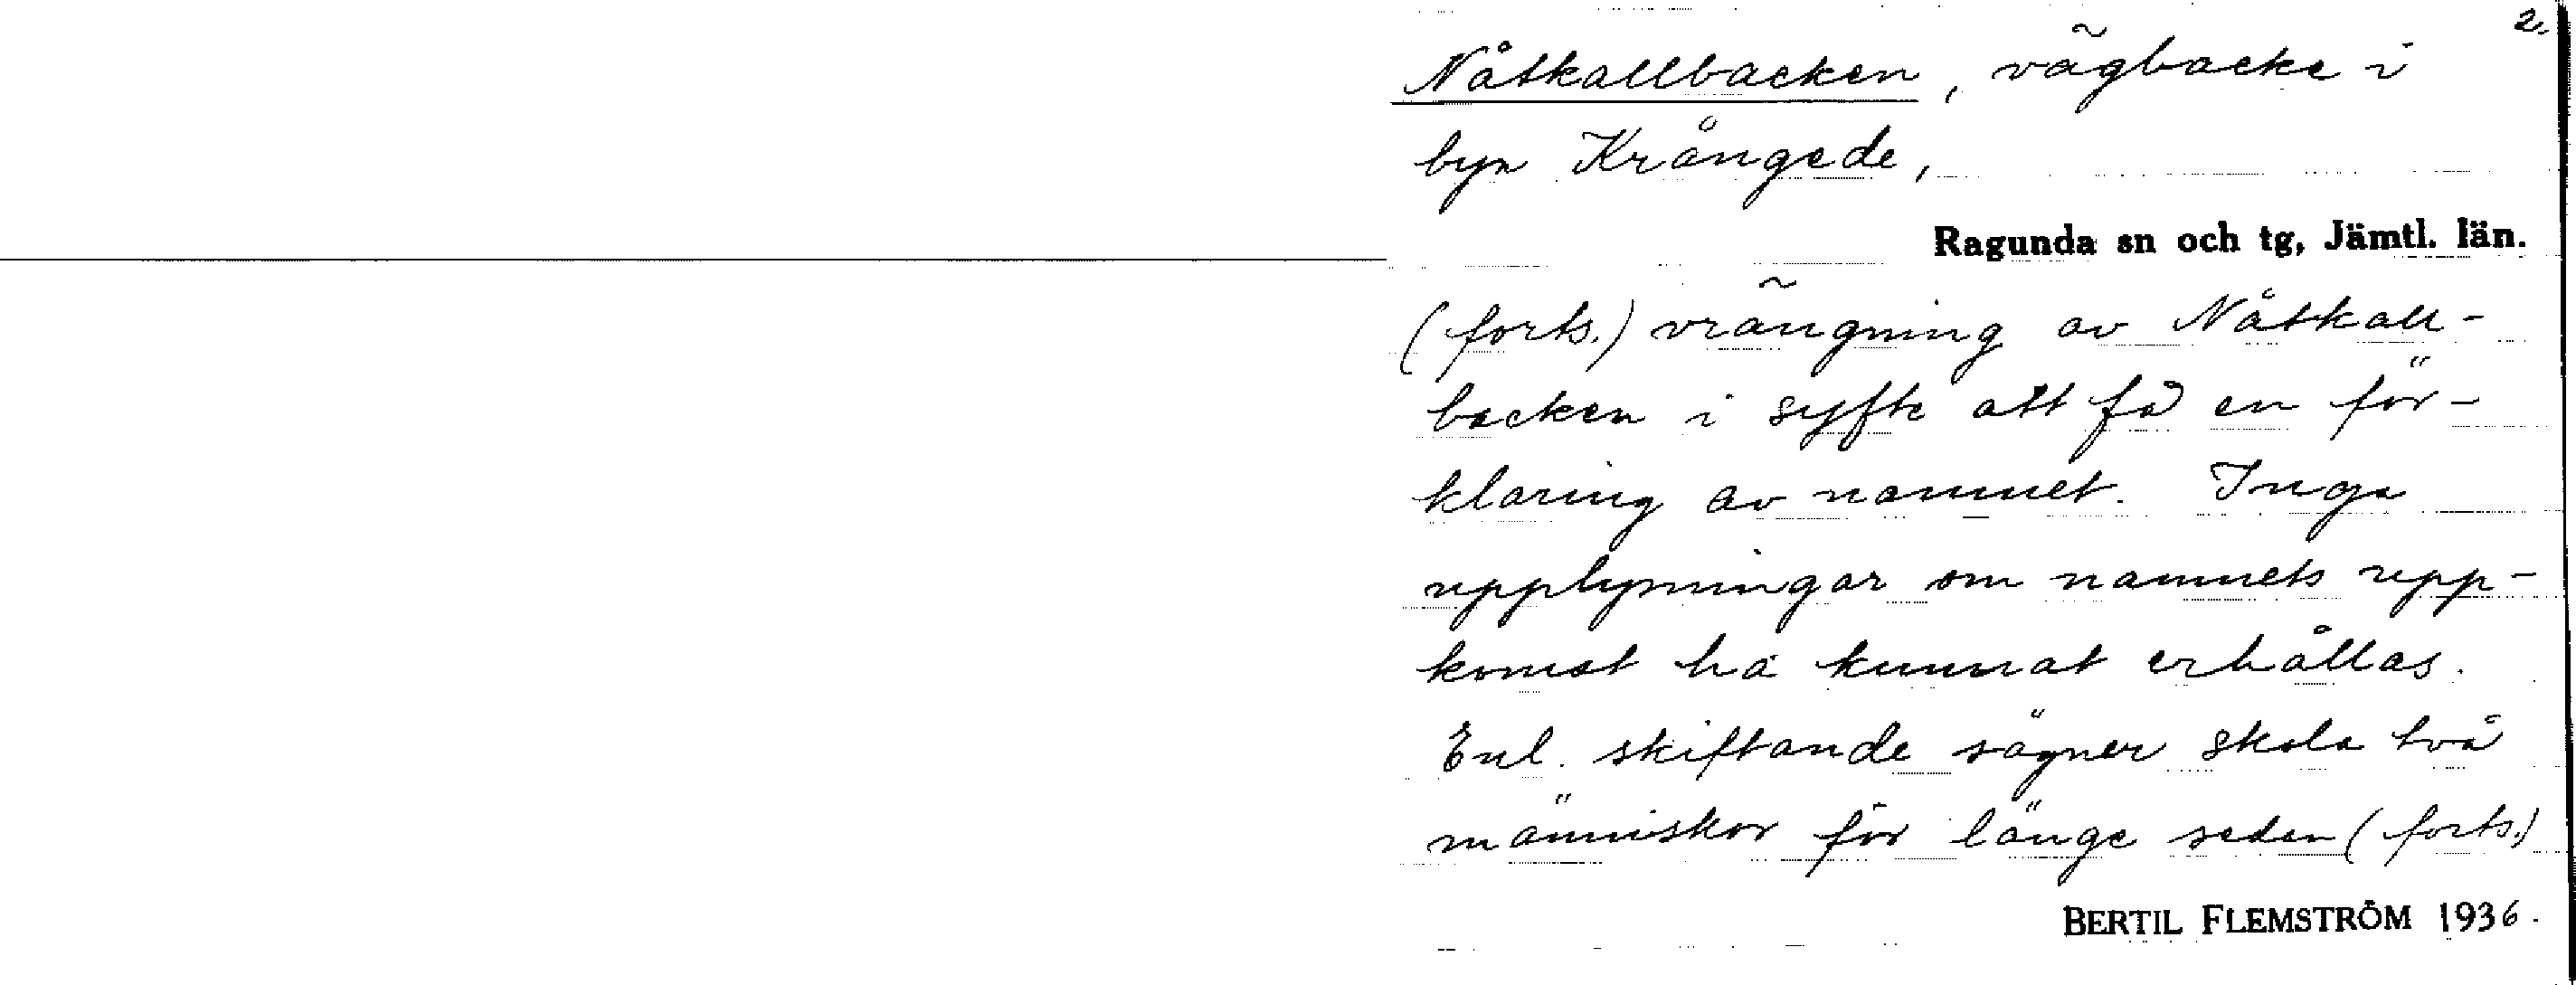 2.
Nåtkallbacken, vägbacke i
byn Krångede,
Ragunda sn och tg, Jämtl. län.
(forts.) vrängning av Nåtkall-
backen i syfte att få en för-
klaring av namnet. Inga
upplysningar om namnets upp-
komst ha kunnat erhållas.
Enl. skiftande sägner skola två
människor för länge sedan (forts.)
BERTIL FLEMSTRÖM 1936.